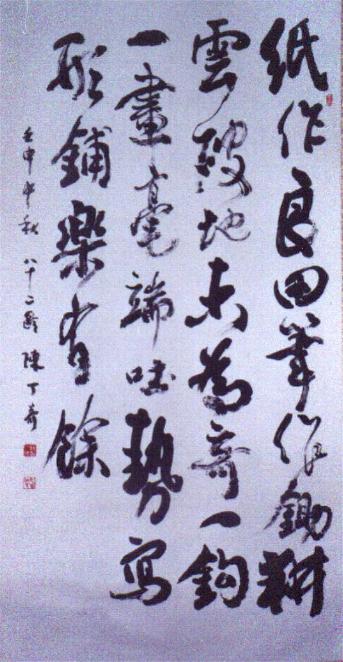 紙作良田筆作鋤耕
雲破地為奇一鉤
一畫毫端勢寫
形鋪樂有餘
壬申秋 八十二 陳丁奇